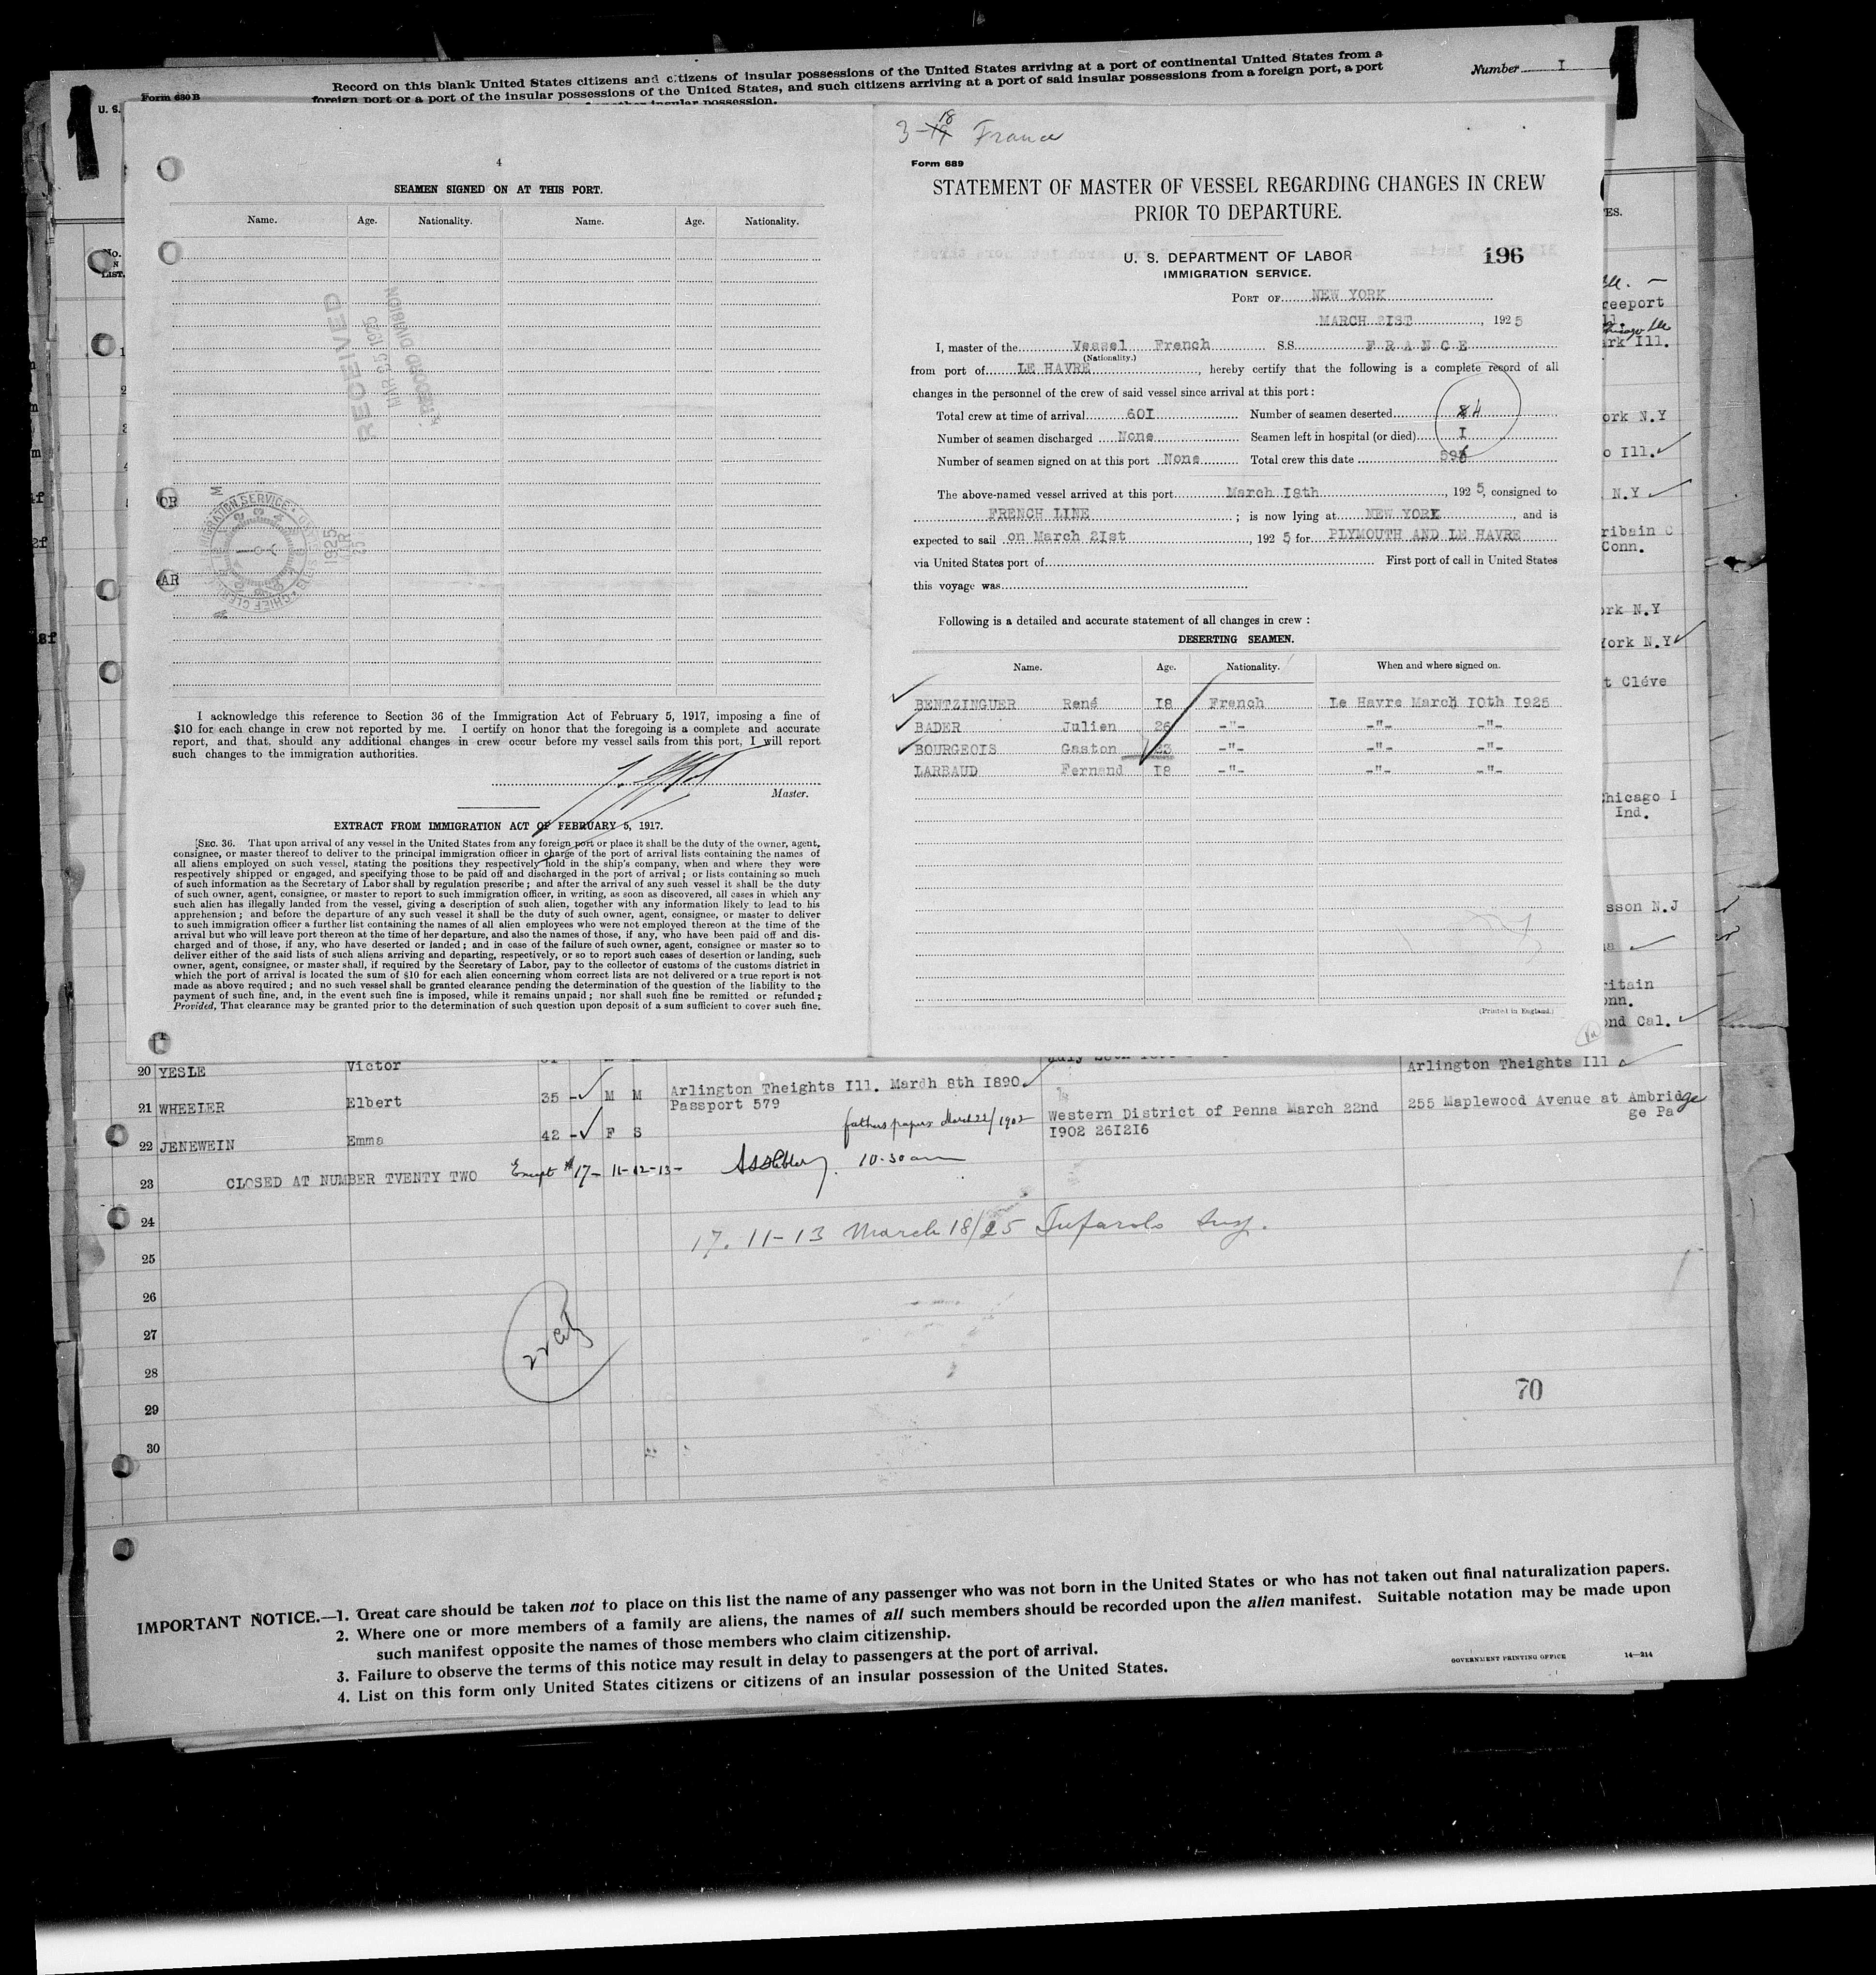 Record on this blank United States citizens and citizens of insular possessions of the United States arriving at a port of continental United States from a
foreign port or a port of the insular possessions of the United States, and such citizens arriving at a port of said insular possessions from a foreign port, a port
insular possession.
Number I
Form 630 B
U. S.
No.
LIST.
4
SEAMEN SIGNED ON AT THIS PORT.
Name. Age. Nationality. Name. Age. Nationality.
RECEIVED
MAR 25 1925
RECORD DIVISION
I acknowledge this reference to Section 36 of the Immigration Act of February 5, 1917, imposing a fine of
$10 for each change in crew not reported by me. I certify on honor that the foregoing is a complete and accurate
report, and that, should any additional changes in crew occur before my vessel sails from this port, I will report
such changes to the immigration authorities.
Master.
EXTRACT FROM IMMIGRATION ACT OF FEBRUARY 5, 1917.
SEC. 36. That upon arrival of any vessel in the United States from any foreign port or place it shall be the duty of the owner, agent,
consignee, or master thereof to deliver to the principal immigration officer in charge of the port of arrival lists containing the names of
all aliens employed on such vessel, stating the positions they respectively hold in the ship's company, when and where they were
respectively shipped or engaged, and specifying those to be paid off and discharged in the port of arrival; or lists containing so much
of such information as the Secretary of Labor shall by regulation prescribe; and after the arrival of any such vessel it shall be the duty
of such owner, agent, consignee, or master to report to such immigration officer, in writing, as soon as discovered, all cases in which any
such alien has illegally landed from the vessel, giving a description of such alien, together with any information likely to lead to his
apprehension; and before the departure of any such vessel it shall be the duty of such owner, agent, consignee, or master to deliver
to such immigration officer a further list containing the names of all alien employees who were not employed thereon at the time of the
arrival but who will leave port thereon at the time of her departure, and also the names of those, if any, who have been paid off and dis-
charged and of those, if any, who have deserted or landed; and in case of the failure of such owner, agent, consignee or master so to
deliver either of the said lists of such aliens arriving and departing, respectively, or so to report such cases of desertion or landing, such
owner, agent, consignee, or master shall, if required by the Secretary of Labor, pay to the collector of customs of the customs district in
which the port of arrival is located the sum of $10 for each alien concerning whom correct lists are not delivered or a true report is not
made as above required; and no such vessel shall be granted clearance pending the determination of the question of the liability to the
payment of such fine, and, in the event such fine is imposed, while it remains unpaid; nor shall such fine be remitted or refunded:
Provided, That clearance may be granted prior to the determination of such question upon deposit of a sum sufficient to cover such fine.
3-18 France
Form 689
STATEMENT OF MASTER OF VESSEL REGARDING CHANGES IN CREW
PRIOR TO DEPARTURE.
U. S. DEPARTMENT OF LABOR
IMMIGRATION SERVICE.
196
PORT OF NEW YORK
MARCH 2IST, 1925
I, master of the Vessel French S.S. FRANCE
(Nationality.)
from port of LE HAVRE, hereby certify that the following is a complete record of all
changes in the personnel of the crew of said vessel since arrival at this port:
Total crew at time of arrival 60I Number of seamen deserted 4
Number of seamen discharged None Seamen left in hospital (or died) I
Number of seamen signed on at this port None Total crew this date 596
The above-named vessel arrived at this port March I8th, 1925, consigned to
FRENCH LINE; is now lying at NEW YORK, and is
expected to sail on March 2Ist, 1925 for PLYMOUTH AND LE HAVRE
via United States port of First port of call in United States
this voyage was
Following is a detailed and accurate statement of all changes in crew:
DESERTING SEAMEN.
Name. Age. Nationality. When and where signed on.
BENTZINGUER René I8 French Le Havre March I0th I925
BADER Julien 26 -"- -"- -"-
BOURGEOIS Gaston 23 -"- -"- -"-
LARBAUD Fernand I8 -"- -"- -"-
(Printed in England.)
reeport
ark Ill.
ork N.Y
o Ill.
N.Y
ribain C
Conn.
ork N.Y
York N.Y
t Cléve
Chicago I
Ind.
sson N.J
ritain
onn.
ond Cal.
20 YESLE Victor Arlington Theights Ill
21 WHEELER Elbert 35 - M M Arlington Theights Ill. Mardh 8th I890. Passport 579
22 JENEWEIN Emma 42 - F S fathers papers March 22/1902 Western District of Penna March 22nd I902 26I2I6 255 Maplewood Avenue at Ambridge Pa
23 CLOSED AT NUMBER TVENTY TWO Except #17- 11-12-13- 10-30 am
24 17. 11-13 March 18/25 Insp.
25
26
27
28
29
30
70
IMPORTANT NOTICE.—1. Great care should be taken not to place on this list the name of any passenger who was not born in the United States or who has not taken out final naturalization papers.
2. Where one or more members of a family are aliens, the names of all such members should be recorded upon the alien manifest. Suitable notation may be made upon
such manifest opposite the names of those members who claim citizenship.
3. Failure to observe the terms of this notice may result in delay to passengers at the port of arrival.
4. List on this form only United States citizens or citizens of an insular possession of the United States.
GOVERNMENT PRINTING OFFICE 14—214